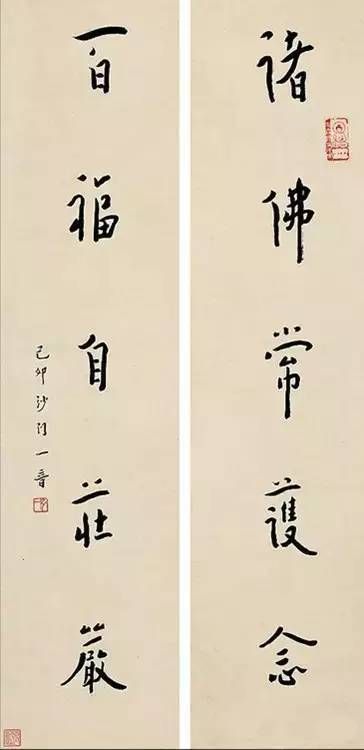 諸佛常護念
百福自莊嚴
己卯沙門一音